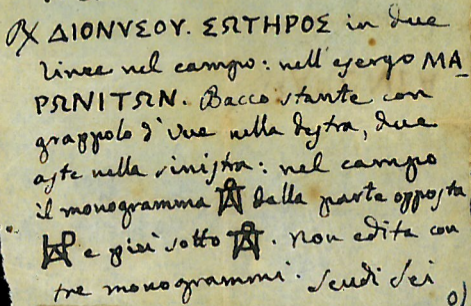 ℞ ΔΙΟΝΥΣΟΥ. ΣΩΤΗΡΟΣ in due
linee nel campo: nell'esergo ΜΑ_
ΡΩΝΙΤΩΝ. Bacco stante con
grappolo d'uve nella destra, due
aste nella sinistra: nel campo
il monogramma dalla parte opposta
e piu sotto . Non edita con
tre monogrammi. Scudi sei